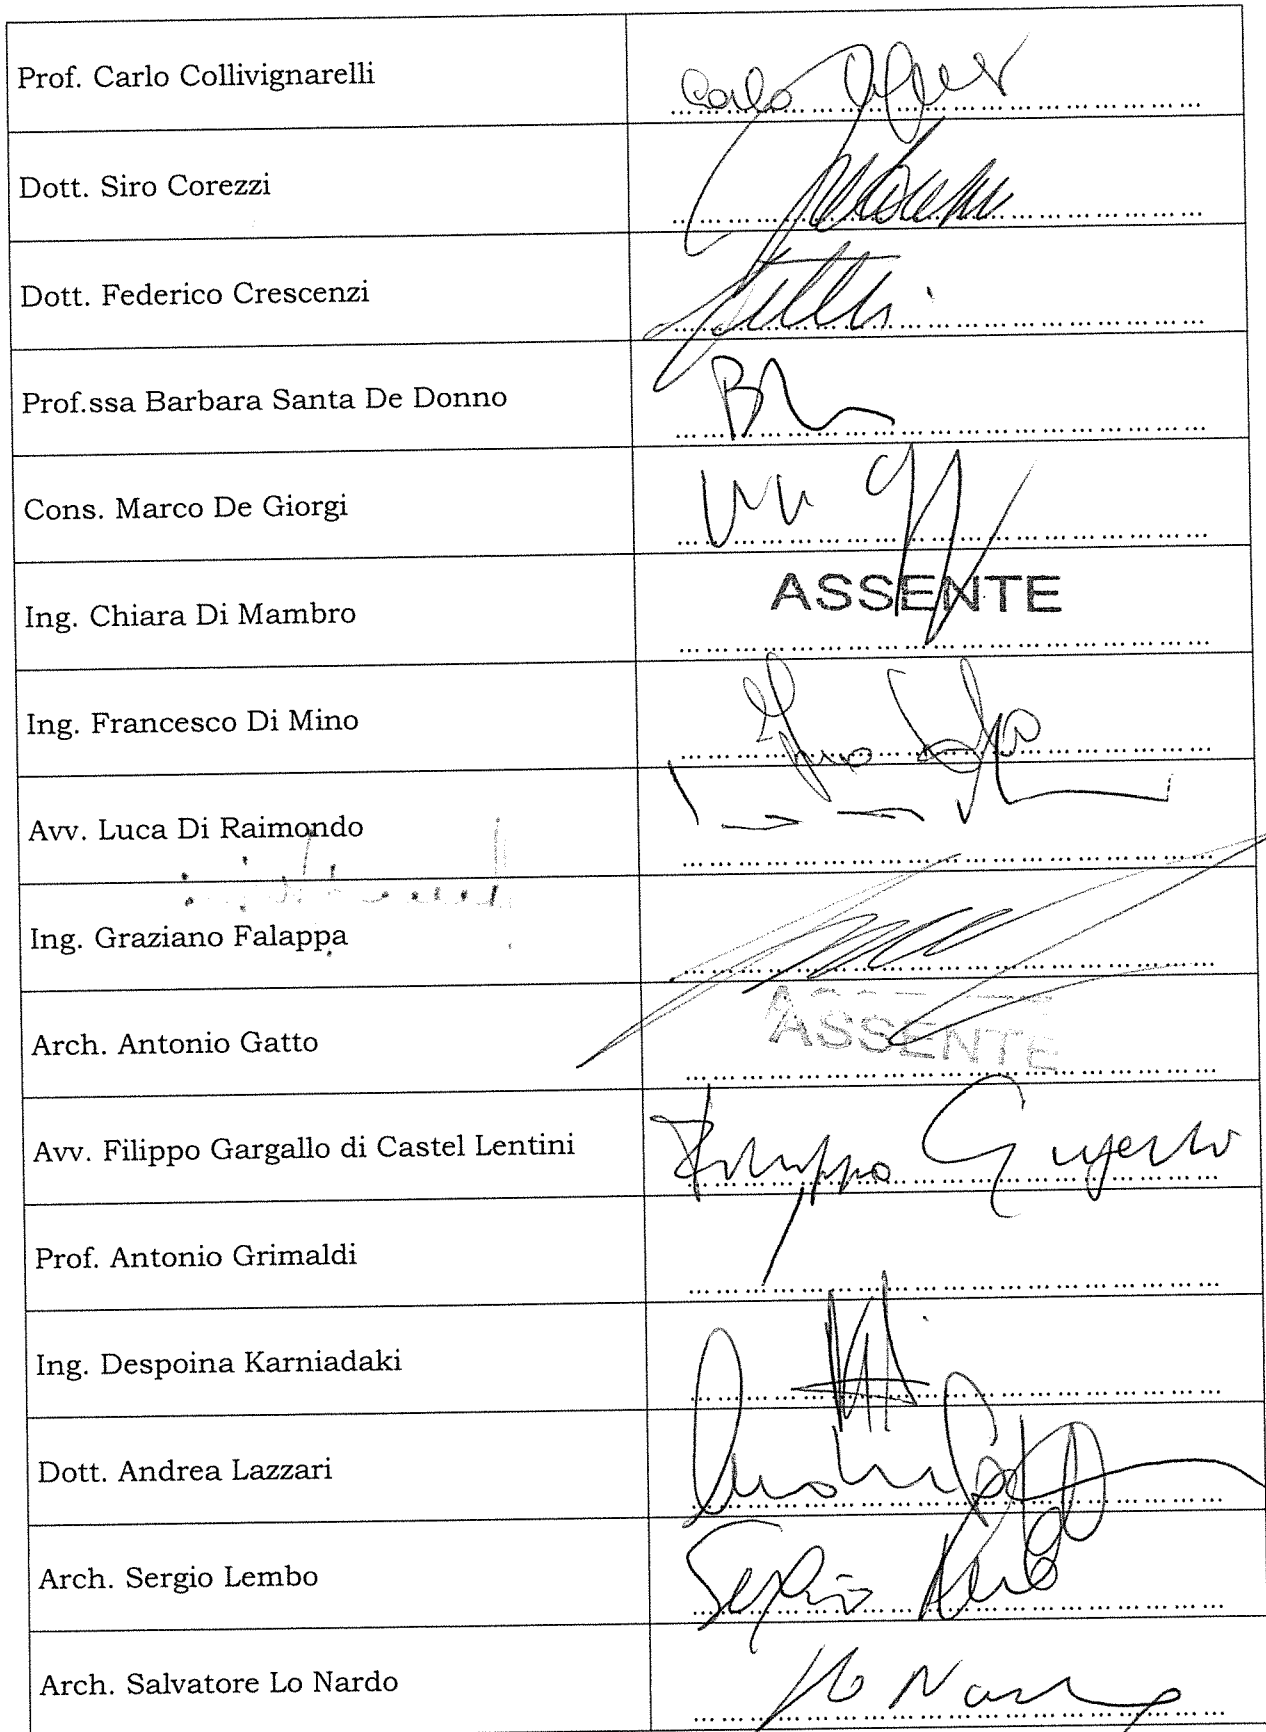 Prof. Carlo Collivignarelli
Carlo
Dott. Siro Corezzi
Dott. Federico Crescenzi
Prof.ssa Barbara Santa De Donno
Cons. Marco De Giorgi
Ing. Chiara Di Mambro
ASSENTE
Ing. Francesco Di Mino
Avv. Luca Di Raimondo
Ing. Graziano Falappa
Arch. Antonio Gatto
ASSENTE
Avv. Filippo Gargallo di Castel Lentini
Filippo Gargallo
Prof. Antonio Grimaldi
Ing. Despoina Karniadaki
Dott. Andrea Lazzari
Arch. Sergio Lembo
Sergio Lembo
Arch. Salvatore Lo Nardo
Lo Nardo